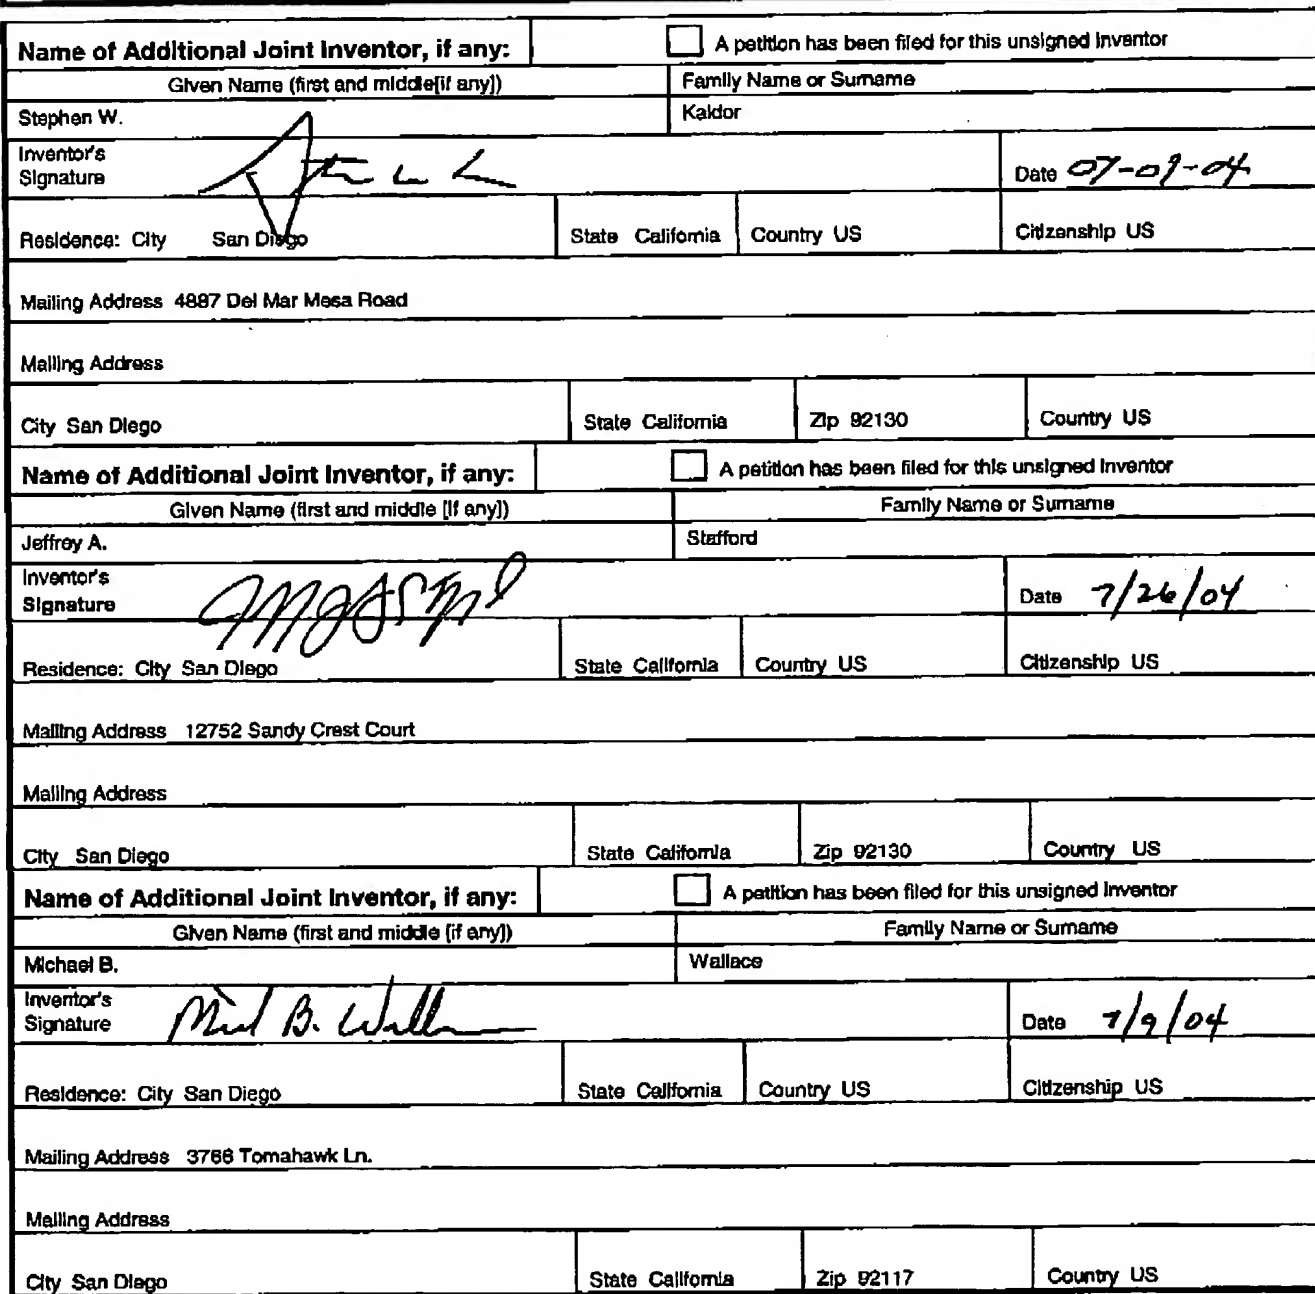 Name of Additional Joint Inventor, if any: A petition has been filed for this unsigned Inventor
Given Name (first and middle[if any]) Family Name or Surname
Stephen W. Kaldor
Inventor's
Signature Date 07-09-04
Residence: City San Diego State California Country US Citizenship US
Mailing Address 4887 Del Mar Mesa Road
Mailing Address
City San Diego State California Zip 92130 Country US
Name of Additional Joint Inventor, if any: A petition has been filed for this unsigned Inventor
Given Name (first and middle [if any]) Family Name or Surname
Jeffrey A. Stafford
Inventor's
Signature Date 7/26/04
Residence: City San Diego State California Country US Citizenship US
Mailing Address 12752 Sandy Crest Court
Mailing Address
City San Diego State California Zip 92130 Country US
Name of Additional Joint Inventor, if any: A petition has been filed for this unsigned Inventor
Given Name (first and middle [if any]) Family Name or Surname
Michael B. Wallace
Inventor's
Signature Date 7/9/04
Residence: City San Diego State California Country US Citizenship US
Mailing Address 3766 Tomahawk Ln.
Mailing Address
City San Diego State California Zip 92117 Country US